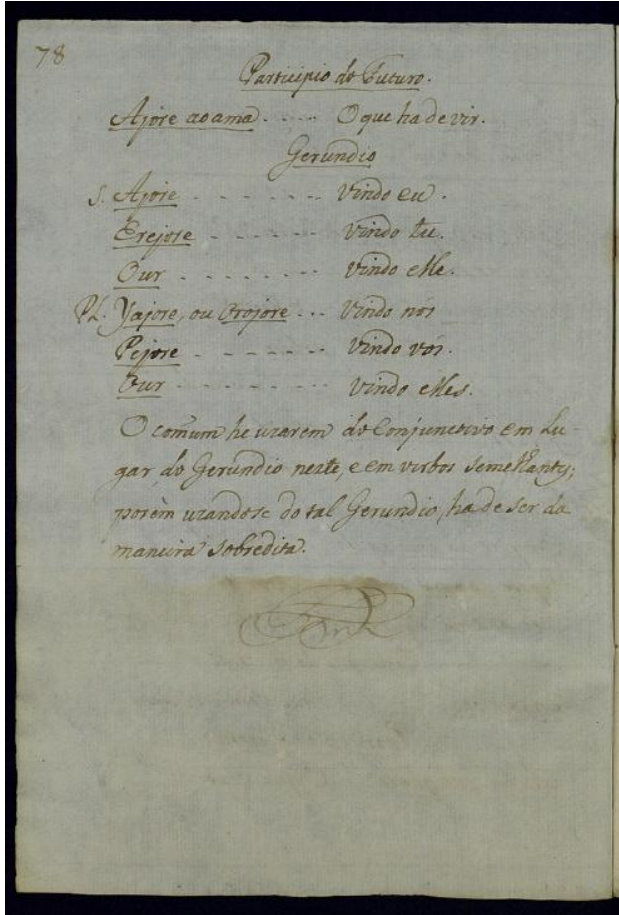 78
Participio do Futuro.
Ajore aoama ..... O que ha de vir.
Gerundio
S. Ajore - - - - - - - Vindo eu.
Erejore - - - - - - - Vindo tu.
Our - - - - - - - - Vindo elle.
Pl. Yajore, ou Orojore ... Vindo nós
Pejore - - - - - - - Vindo vós.
Our - - - - - - - - Vindo elles.
O comum he uzarem do Conjunctivo em Lu-
gar do Gerundio neste, e em verbos semelhantes;
porèm uzandose do tal Gerundio, ha de ser da
maneira sobredita.
Fim